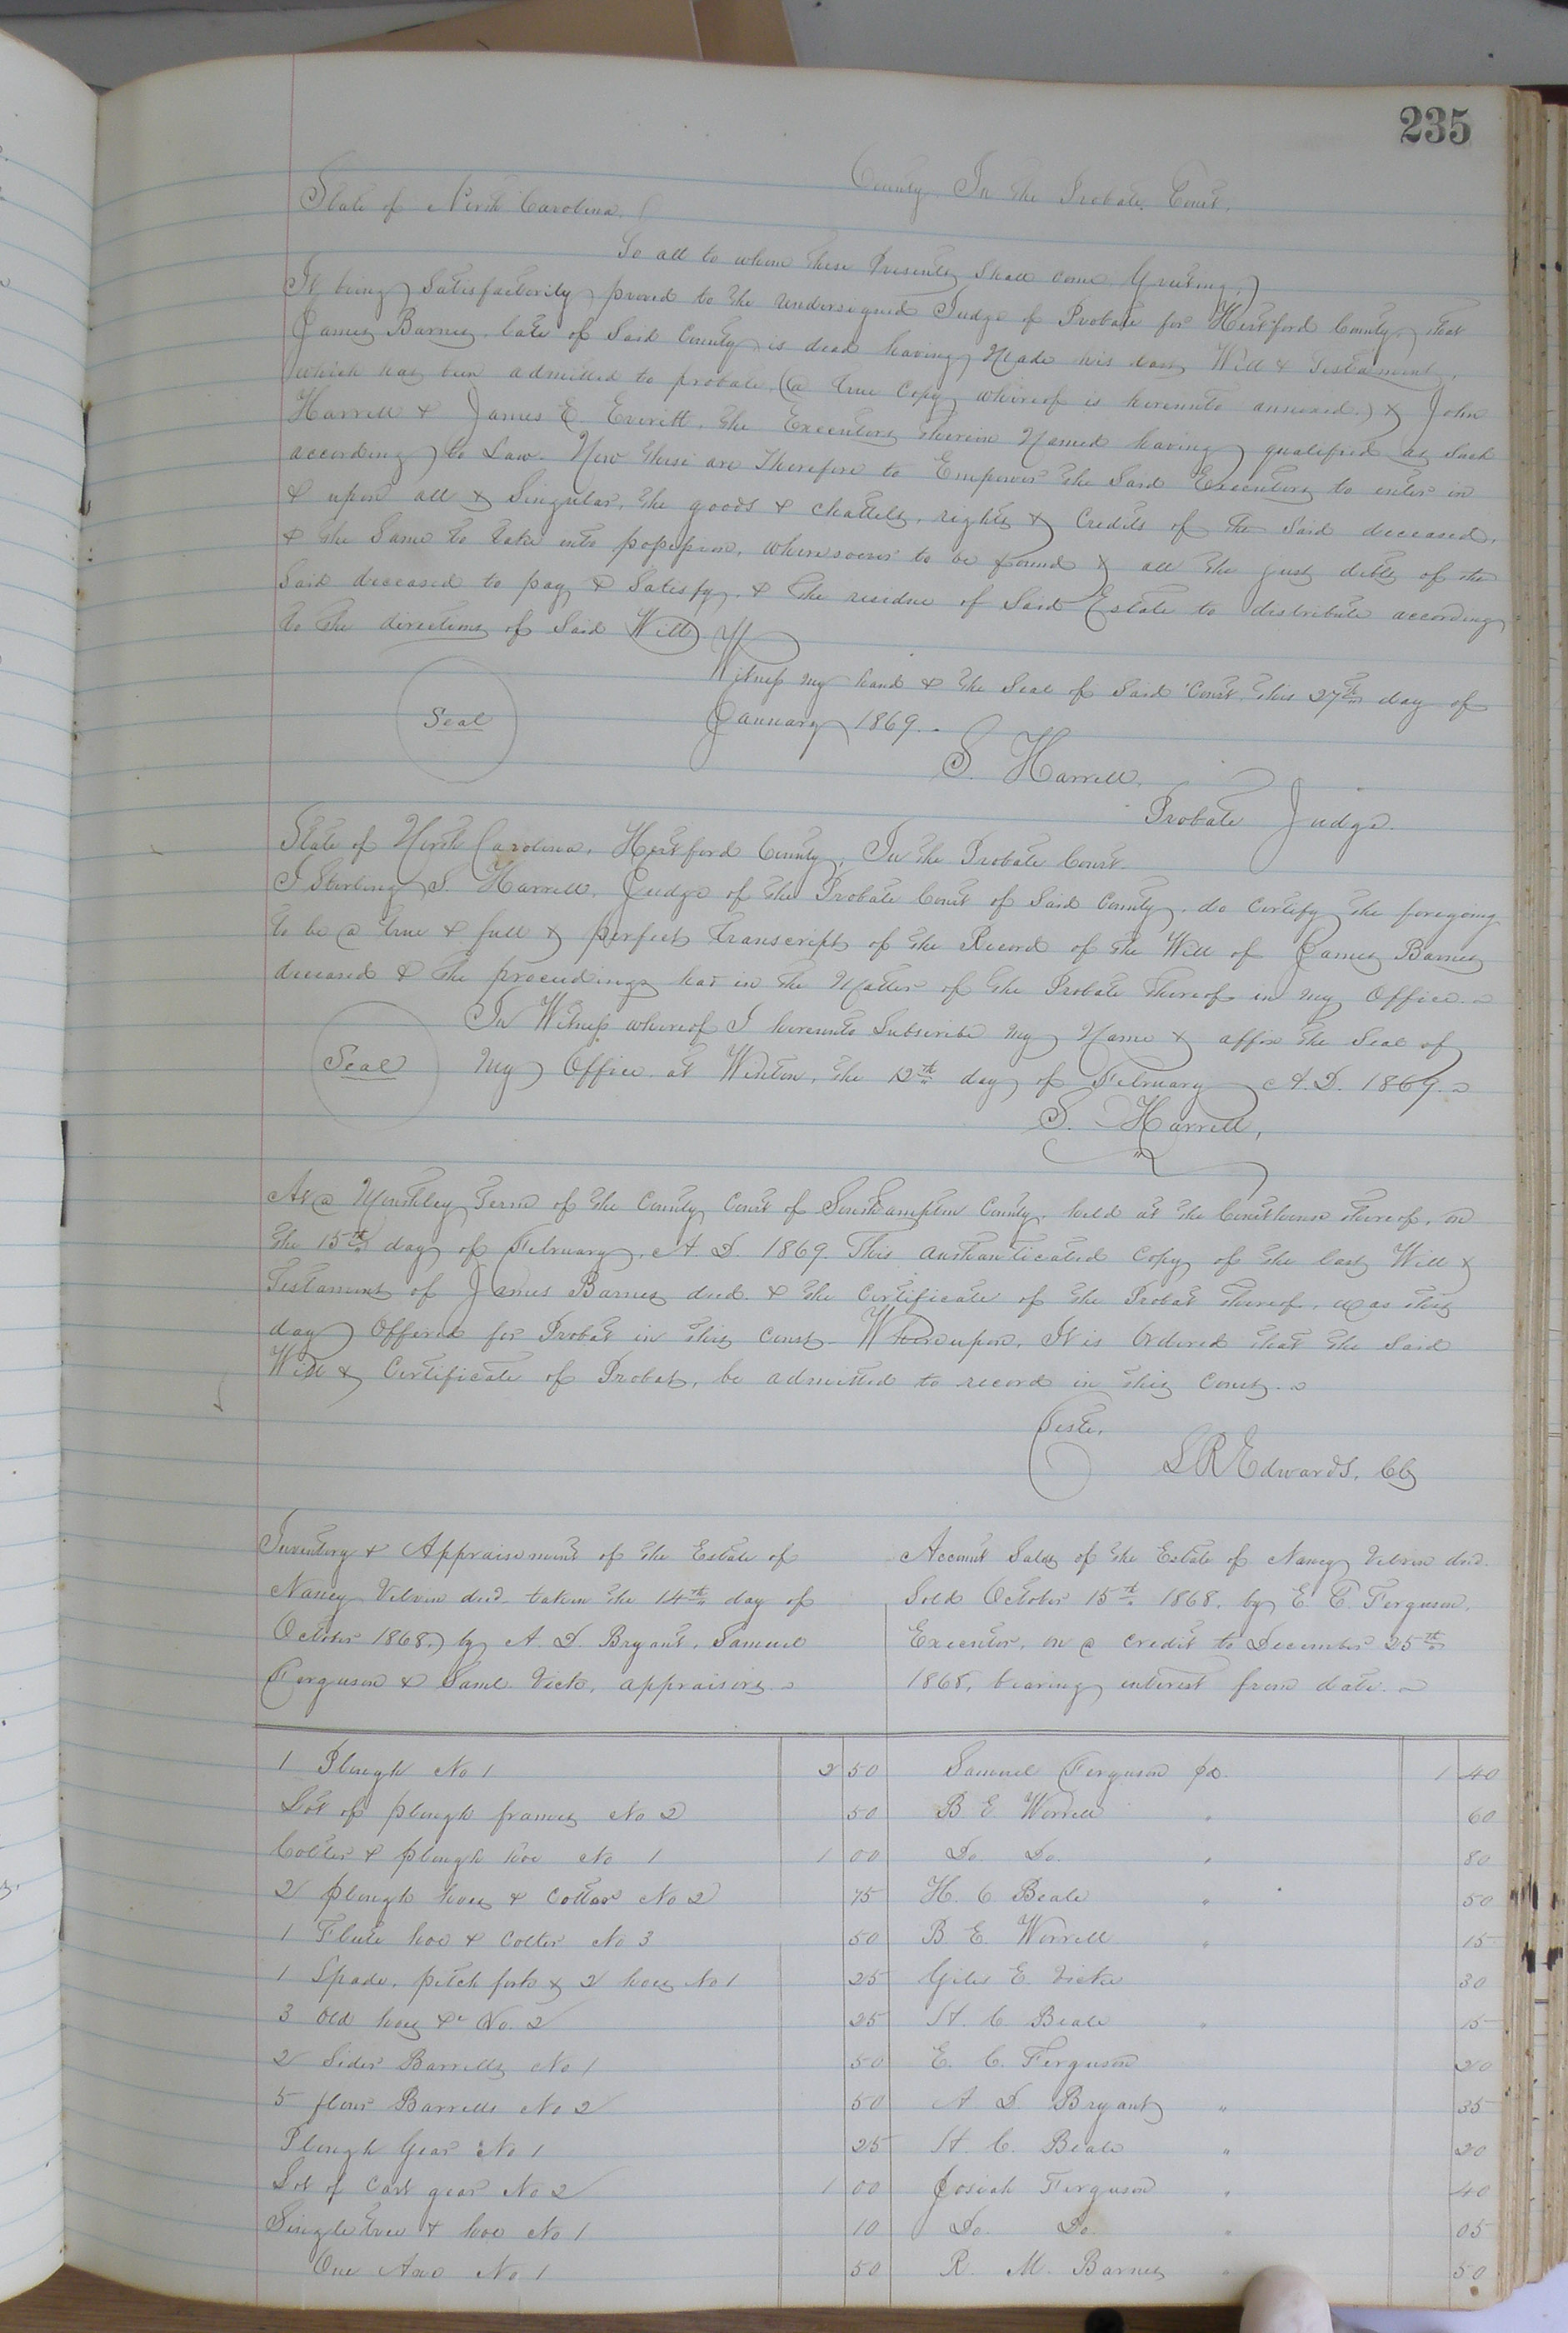 235
State of North Carolina. County. In the Probate Court.
To all to whom these Presents Shall come Greeting,
It being Satisfactorily proved to the undersigned Judge of Probate for Hertford County, that
James Barnes. late of Said County is dead having Made his last Will & Testament,
which has been admitted to probate, (a true Copy whereof is hereunto annexed.) & John
Harrell & James E. Everitt. the Executors therein Named having qualified as Such
according to Law. Now these are Therefore to Empower the Said Executors to enter in
& upon all & Singular, the goods & chattels, rights & Credits of the Said deceased,
& the Same to take into possession, wheresoever to be found & all the just debts of the
Said deceased to pay & Satisfy, & the residue of Said Estate to distribute according
to the directions of Said Will.
Witness my hand & the Seal of Said Court this 27th day of
January 1869.
Seal
S. Harrell,
Probate Judge.
State of North Carolina, Hertford County, In the Probate Court.
I Sterling S. Harrell, Judge of the Probate Court of Said County, do certify the foregoing
to be a true & full & perfect transcript of the Record of the Will of James Barnes
deceased & the proceedings had in the Matter of the Probate thereof in my Office.
In Witness whereof I hereunto Subscribe my Name & affix the Seal of
Seal My Office at Winton, the 12th day of February A.D. 1869.
S. Harrell,
At a Monthley Term of the County Court of Southampton County, held at the Courthouse thereof, on
the 15th day of February, A. D. 1869. This authanticated Copy of the last Will &
Testament of James Barnes decd. & the Certificate of the Probat thereof, was this
day Offered for Probat in this Court. Whereupon, It is Ordered that the Said
Will & Certificate of Probat, be admitted to record in this Court.
Teste,
L R Edwards, Clk
Inventory & Appraisement of the Estate of
Nancy decd. taken the 14th day of
October 1868, by A. D. Bryant, Samuel
Ferguson & Saml. Vick, appraisers.
Account Sales of the Estate of Nancy decd.
Sold October 15th 1868, by E. C. Ferguson,
Executor, on a credit to December 25th
1868, bearing interest from date.
1 Plough No 1 2 50 Samuel Ferguson pd. 1 40
Lot of plough frames No 2 50 B E Worrell " 60
Colter & plough hoe No 1 1 00 Do. Do. " 80
2 plough hoes & Colter No 2 75 H. C. Beale " 50
1 Fluke hoe & Colter No 3 50 B. E. Worrell " 15
1 Spade, pitch fork & 2 hoes No 1 25 Giles E. Vick 30
3 Old hoes &c No. 2 25 H. C. Beale " 15
2 Sider Barrells No 1 50 E. C. Ferguson 20
5 flour Barrells No 2 50 A D Bryant " 35
Plough Gear No 1 25 H. C. Beale " 20
Lot of Cart gear No 2 1 00 Josiah Ferguson " 40
Singletree & hoe No 1 10 Do. Do. " 05
One Axe No 1 50 R. M. Barnes " 50